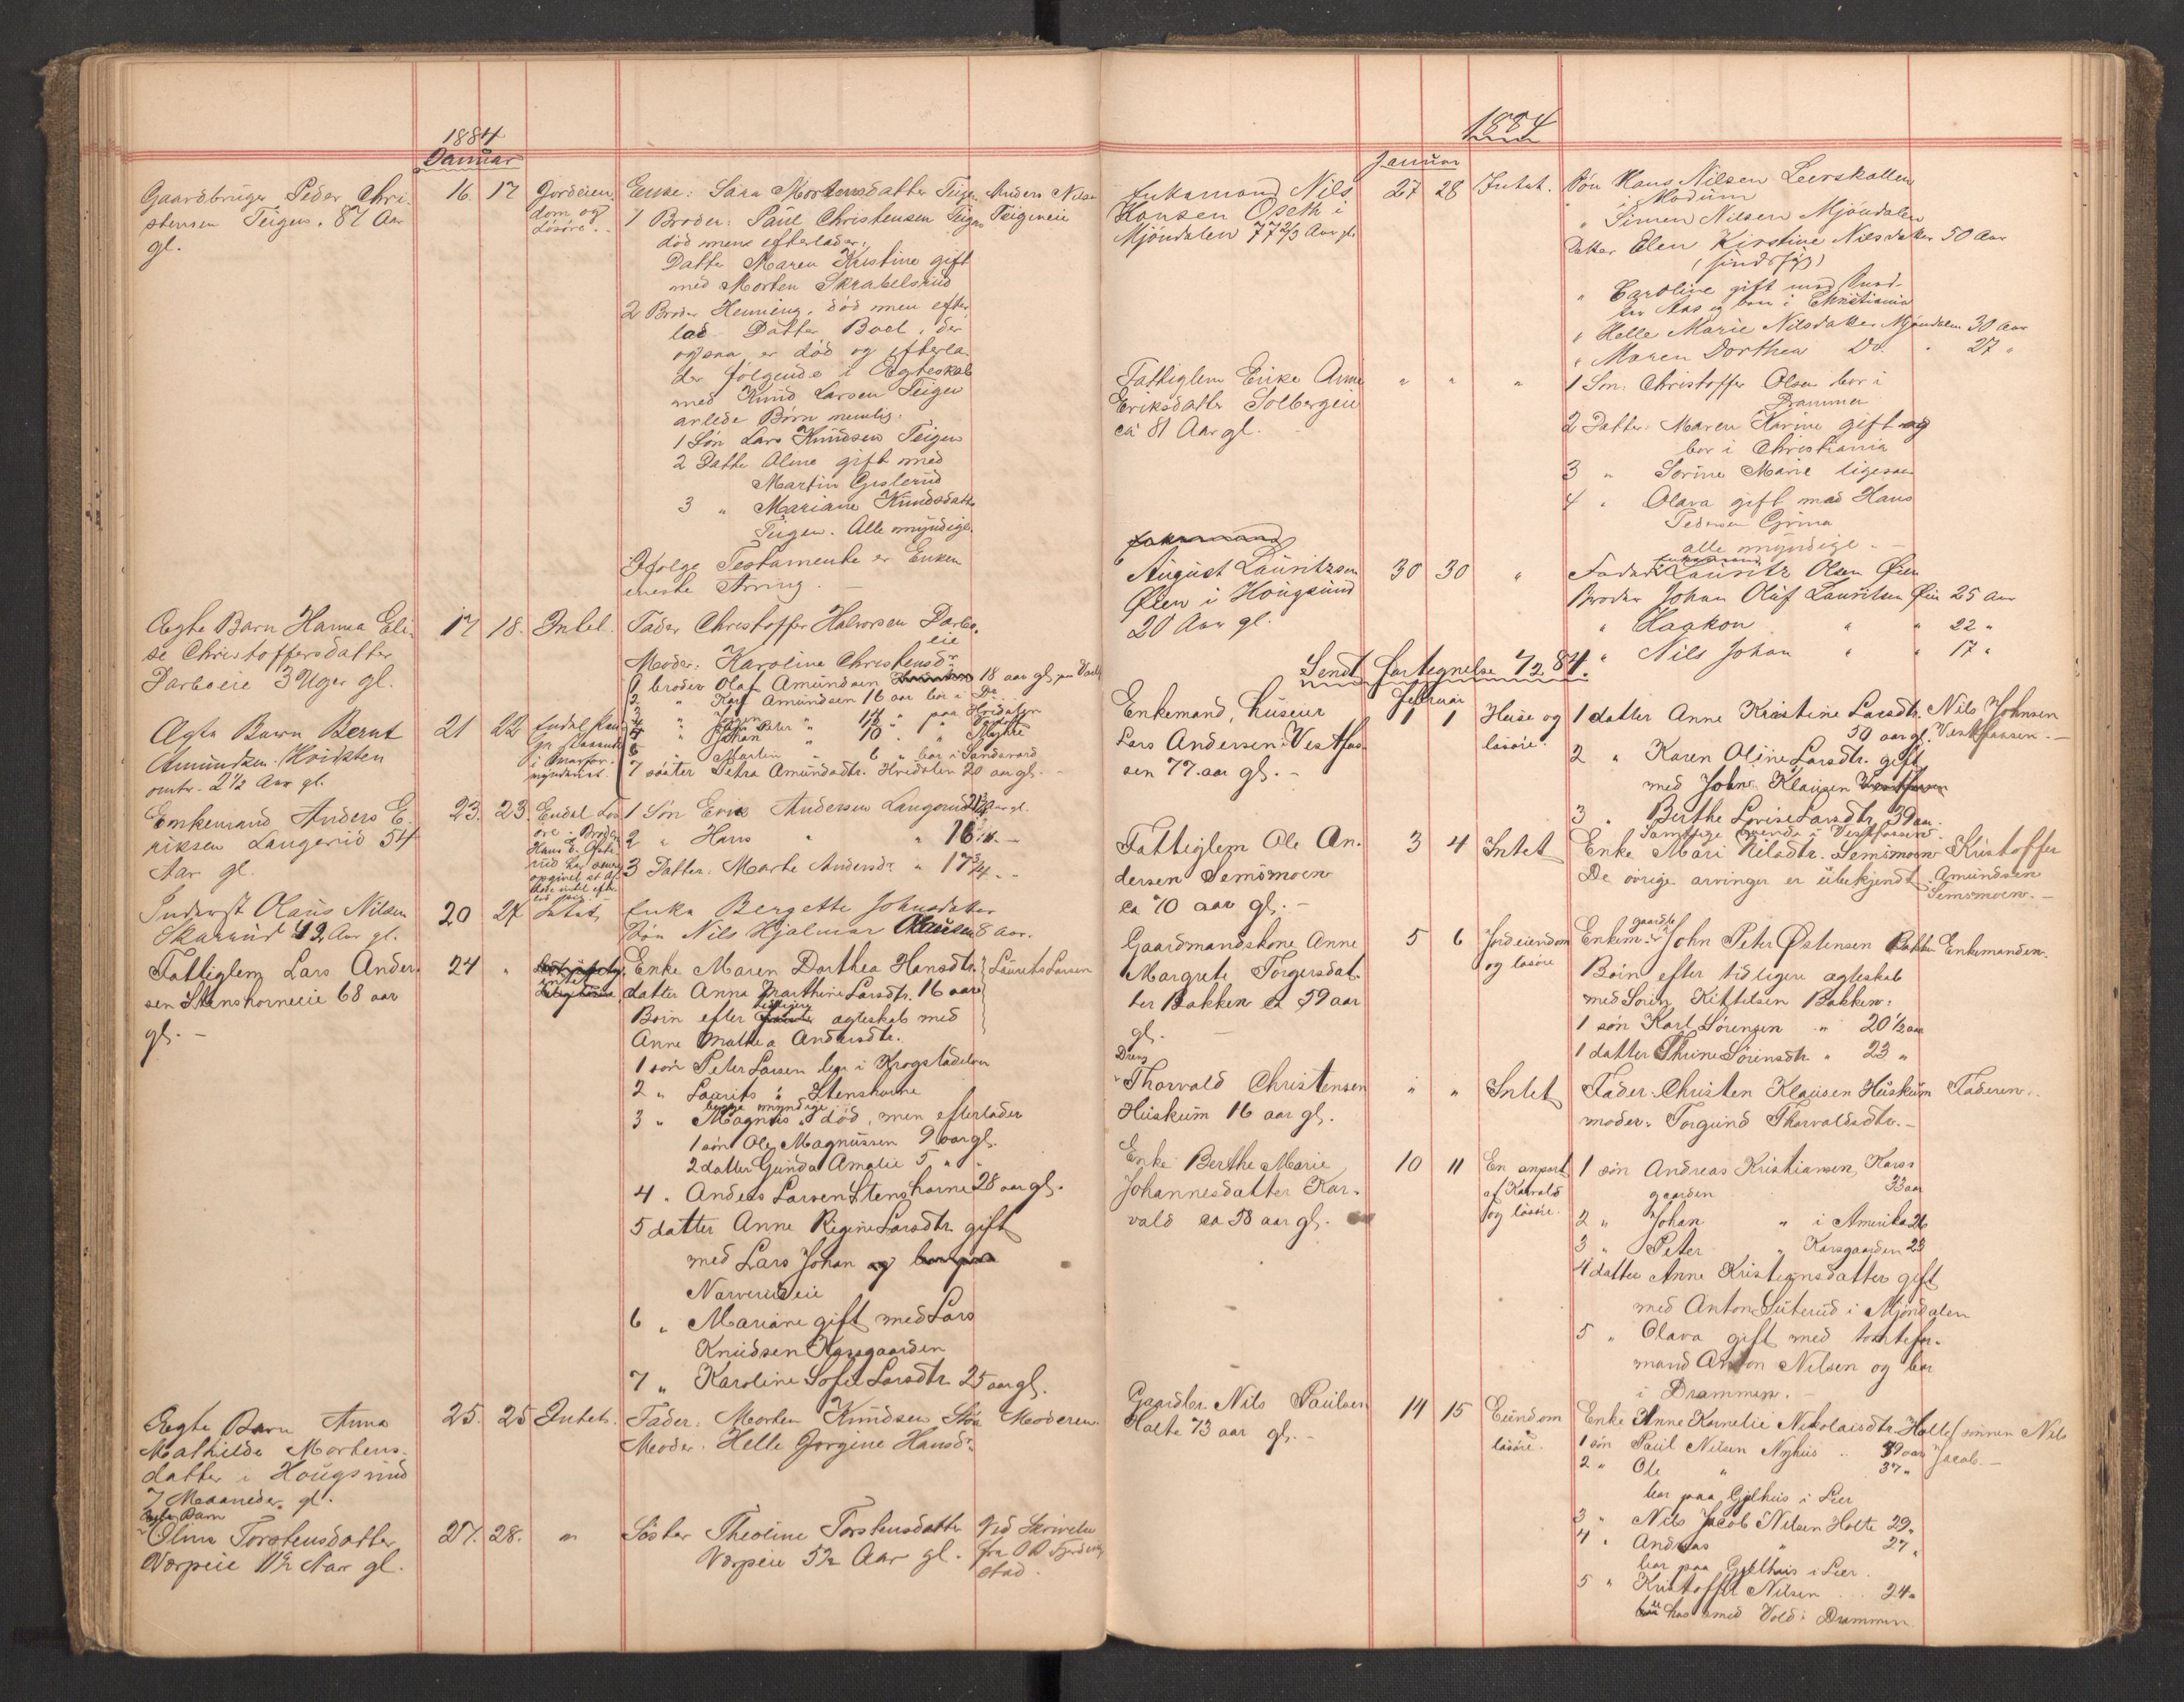 1884
Januar
Gaardbruger Peder Chri-
stensen Teigen. 87 Aar
gl.
16. 17
Jordeien-
dom og
Løsøre.
Enke: Sara Mortensdatter Teigen Anders Nilsen
1 Broder: Paul Christensen Teigen Teigeneie
død mens efterlader:
Datter Maren Kristine gift
med Morten Skrabelsrud
2 Broder Henning, død men efter-
lod Datter Boel, der
ogsaa er død og efterla-
der følgende i Ægteskab
med Knud Larsen Teigen
avlede Børn nemlig.
1 Søn Lars Knudsen Teigen
2 Datter Oline gift med
Martin Gislerud
3 " Mariane Knudsdatter
Teigen. Alle myndige.
Ifølge Testamente er Enken
eneste Arving.
Ægte Barn Hanna Eli-
se Christoffersdatter
Darboeie 3 Uger gl.
17 18. Intet.
Fader Christoffer Halvorsen Darbo-
eie
Moder: Karoline Christensdr
Ægte Barn Bernt
Amundsen Hvidsten
omtr. 2½ Aar gl.
21 22
1 broder Olaf Amundsen 18 aar gl.
2 " Karl Amundsen 16 aar bor i Do
3 " 14 " paa Hvidsten
4 " Peter
5 " Johan " 10 "
6 " Martin " 6 " bor i Sandsværd
7 søster Petra Amundsdtr. Hvidsten 20 aar gl.
Enkemand Anders E-
riksen Langerud 54
Aar gl.
23. 23. Endel Løs-
øre. Broder
Hans E.
1 Søn Erik Andersen Langerud
2 " Hans " " 16
3 Datter: Marte Andersdr " 17¾
Inderst Olaus Nilsen
Skarrud 42 Aar gl.
20 27 Intet,
Enke Bergette Johnsdatter
Søn Nils Hjalmar Olausen 8 aar.
Fattiglem Lars Ander-
sen Stenshorneeie 68 aar
gl. -
24 "
intet
Enke Maren Dorthea Hansdtr. Laurits Larsen
datter Anna Marthine Larsdtr. 16 aar
Børn efter tidligere ægteskab med
Anne Mathea Andersdtr.
1 søn Peter Larsen bor i Krogstadelven
2 " Laurits " Stenshorne
begge myndige
3 " Magnus, død, men efterlader
1 søn Ole Magnussen 9 aar gl.
2 datter Gunda Amalie 5 " "
4 " Andreas Larsen Stenshorne 28 aar gl.
5 datter Anne Regine Larsdtr. gift
med Lars Johan
Narverudeie
6 " Mariane gift med Lars
Knudsen Korsgaarden
7 " Karoline Sofie Larsdtr. 25 aar gl.
Ægte Barn Anna
Mathilde Mortens-
datter i Hougsund
7 Maaneder gl.
25. 25 Intet.
Fader: Morten Knudsen Moderen
Moder: Helle Jørgine Hansdr
Ægte Barn
Olina Torstensdatter
Vorpeie 11½ Aar gl.
27. 28. "
Søster Theoline Torstensdatter
Vorpeie 5½ Aar gl.
Ved Skrivelse
fra
stad.
1884
Januar
Enkemand Nils
Hansen Opseth i
Mjøndalen 77⅔ Aar gl.
27 28 Intet.
Søn Hans Nilsen Leerskallen
i Modum
" Simen Nilsen Mjøndalen
Datter Elen Kirstine Nilsdatter 50 Aar
(sindssyg)
" Caroline gift med
Aas og bor i Christiania
" Helle Marie Nilsdatter Mjøndalen 30 Aar
" Maren Dorthea Do. " 27 "
Fattiglem Enke Anne
Eriksdatter Solbergeie
ca 81 Aar gl.
" " "
1 Søn: Christoffer Olsen bor i
Drammen
2 Datter: Maren Karine gift og
bor i Christiania
3 " Sorine Marie ligesaa
4 " Olava gift med Hans
Pedersen Grina
alle myndige -
Enkemand
August Lauritzsen
Øien i Hougsund
20 Aar gl.
30 30 "
Fader Enkemand Lauritz Olsen Øien
Broder Johan Oluf Lauritzen Øien 25 Aar
" Haakon " " 22 "
" Nils Johan " " 17 "
Sendt fortegnelse 7/2 84.
Februar
Enkemand, huseier
Lars Andersen Vestfos-
sen 77 aar gl. -
1 1 Huse og
løsøre.
1 datter Anne Kristine Larsdtr. Nils Johnsen
50 aar gl. Vestfossen. -
2 " Karen Oline Larsdtr. gift
med John Klausen Vestfossen
3 " Berthe Lovise Larsdtr. 39 aar
Samtlige boende i Vestfossen
Fattiglem Ole An-
dersen Semsmoen
ca 70 aar gl. -
3 4 Intet
Enke Mari Nilsdtr. Semsmoen Kristoffer
De øvrige arvinger er ubekjendt Amundsen
Semsmoen. -
Gaardmandskone Anne
Margrete Torgersdat-
ter Bakken ca 59 aar
gl. -
5 6 Jordeiendom
og løsøre
Enkem. gaardbr John Peter Østensen Bakken Enkemanden.
Børn efter tidligere ægteskab
med Søren Kittelsen Bakken:
1 søn Karl Sørensen " 20½ aar
1 datter Thrine Sørensdtr. " 23 "
Dreng
Thorvald Christensen
Huskum 16 aar gl.
" " Intet
Fader: Christen Klausen Huskum Faderen.
moder: Torgund Thorvaldsdtr. -
Enke Berthe Marie
Johannesdatter Kor-
vald ca 58 aar gl.
10 11 En anpart
af Korvald
og løsøre.
1 søn Andreas Kristiansen, Kors-
gaarden 33 aar
2 " Johan " i Amerika 26
3 " Peter " Korsgaarden 23
4 datter Anne Kristiansdatter gift
med Anton Suterud i Mjøndalen
5 " Olava gift med tomtefor-
mand Anton Nilsen og bor
i Drammen. -
Gaardbr Nils Paulsen
Holte 73 aar gl. -
14 15 Eiendom
løsøre.
Enke Anne Kornelie Nikolaisdtr. Holte sønnen Nils
1 søn Paul Nilsen Nyhus " 39 aar Jacob -
2 " Ole " 37 "
bor paa Gjelhus i Lier
3 " Nils Jacob Nilsen Holte 29 "
4 " Andreas " 27 "
bor paa Gjelhus i Lier.
5 " Kristoffer Nilsen 24 "
hos smed Vold i Drammen